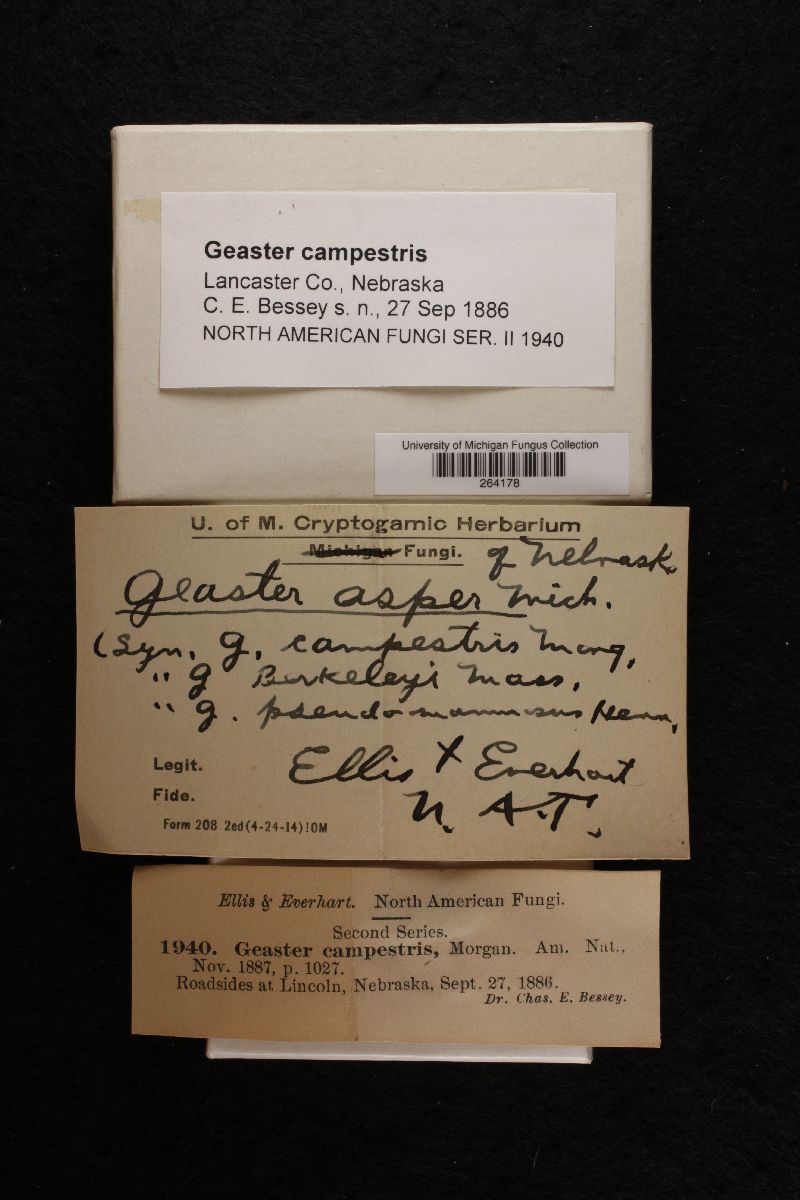 Geaster campestris
Lancaster Co., Nebraska
C. E. Bessey s. n., 27 Sep 1886
NORTH AMERICAN FUNGI SER. II 1940
University of Michigan Fungus Collection
264178
U. of M. Cryptogamic Herbarium
Michigan Fungi. of Nebrask
Geaster asper Mich.
(Syn. G. campestris Morg,
" G Berkeleyi Mass,
" G. pseudo-mammosus Henn,
Legit. Ellis & Everhart
Fide. N. A.
Form 208 2ed(4-24-14)10M
Ellis & Everhart. North American Fungi.
Second Series.
1940. Geaster campestris, Morgan. Am. Nat.,
Nov. 1887, p. 1027.
Roadsides at Lincoln, Nebraska, Sept. 27, 1886.
Dr. Chas. E. Bessey.